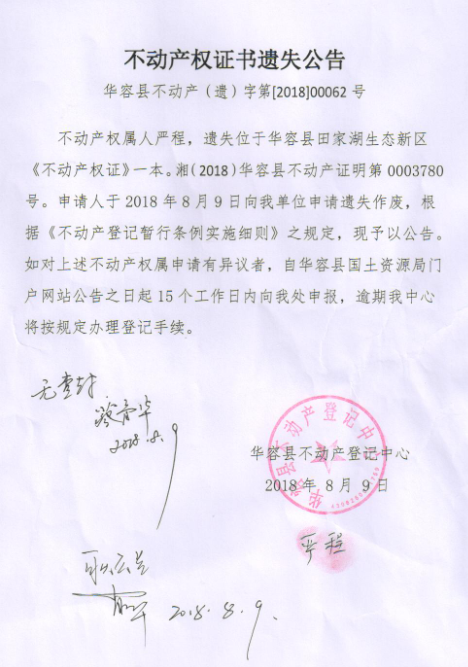 不动产权证书遗失公告
华容县不动产（遗）字第[2018]00062 号
不动产权属人严程，遗失位于华容县田家湖生态新区
《不动产权证》一本。湘（2018）华容县不动产证明第 0003780
号。申请人于 2018 年 8 月 9 日向我单位申请遗失作废，根
据《不动产登记暂行条例实施细则》之规定，现予以公告。
如对上述不动产权属申请有异议者，自华容县国土资源局门
户网站公告之日起 15 个工作日内向我处申报，逾期我中心
将按规定办理登记手续。
无查封
2018.8.9
华容县不动产登记中心
华容县不动产登记中心
2018 年 8 月 9 日
严程
2018.8.9.